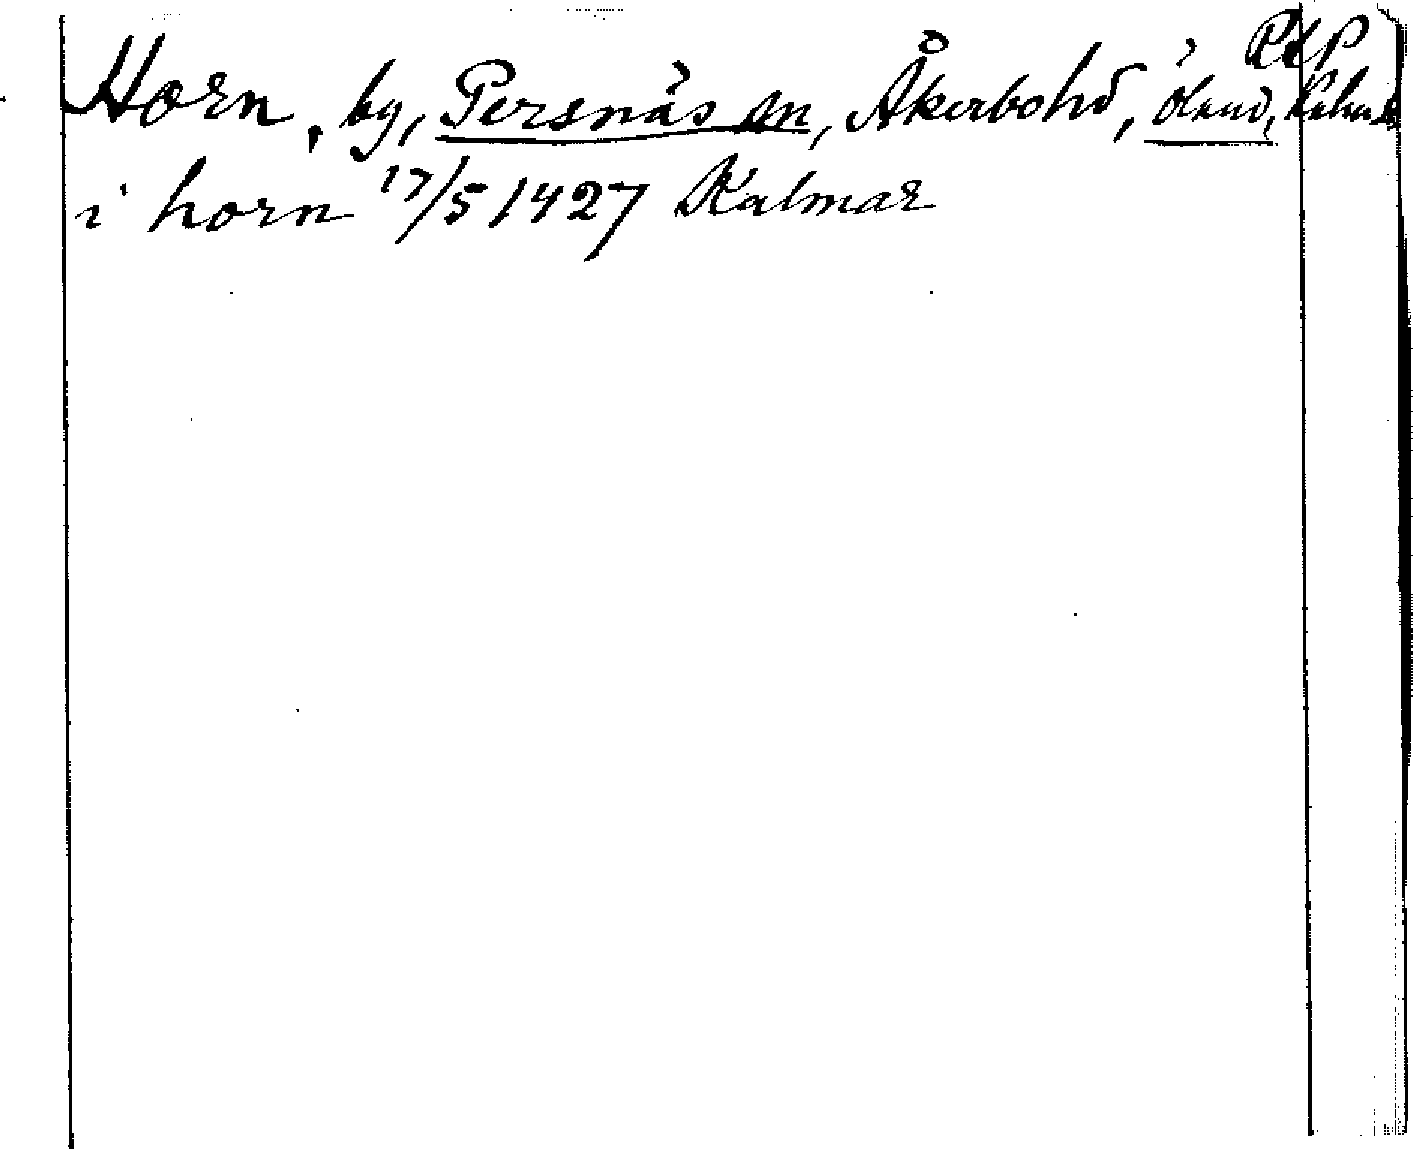 Horn, by, Persnäs sn, Åkerbohd, Öland, Kalm.
i horn 17/5 1427 Kalmar